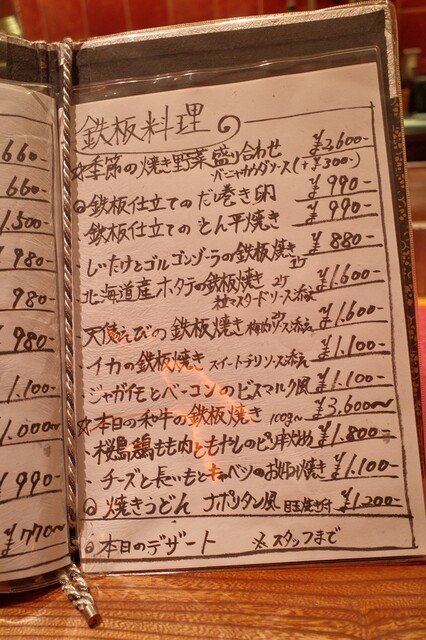 660-
660-
1.500-
980-
980-
980-
1.100-
1.000~
990-
¥770~
鉄板料理
☆季節の焼き野菜盛り合わせ ¥2,600-
バーニャカウダソース(+¥300-)
◎鉄板仕立てのだし巻き卵 ¥990-
・鉄板仕立てのとん平焼き ¥990-
・しいたけとゴルゴンゾーラの鉄板焼き ¥880-
・北海道産ホタテの鉄板焼き 2ケ ¥1.600-
粒マスタードソース添え
・天使えびの鉄板焼き 2ケ 梅肉ソース添え ¥1.600-
・イカの鉄板焼き スイートチリソース添え ¥1.100-
・ジャガイモとベーコンのビスマルク風 ¥1.100-
☆本日の和牛の鉄板焼き 100g~ ¥3,600~
・桜島鶏もも肉ともやしのピリ辛炒め ¥1.800-
・チーズと長いもとキャベツのお好み焼き ¥1.100-
◎焼きうどん ナポリタン風 目玉焼き付 ¥1.200-
◎本日のデザート ※スタッフまで